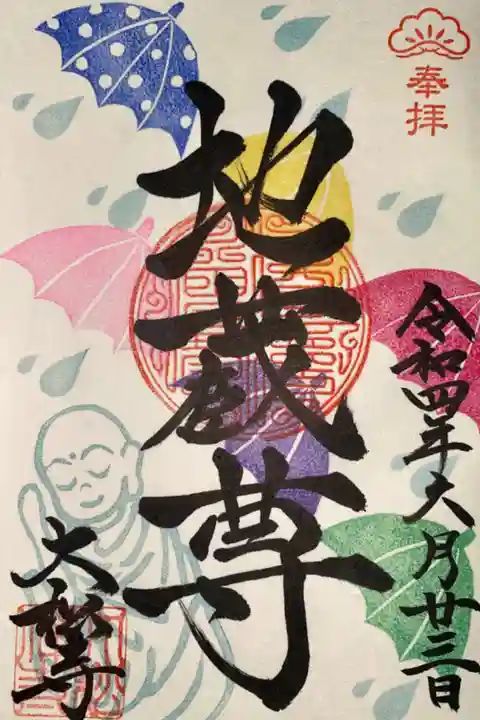 奉拝
令和四年六月廿三日
地蔵尊